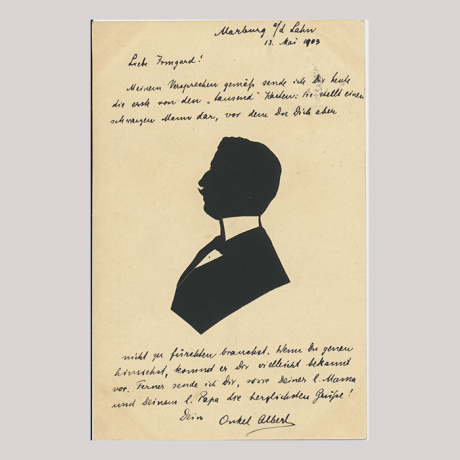 Marburg a/d Lahn
13. Mai 1909
Liebe Irmgard!
Meinem Versprechen gemäß sende ich Dir heute
die erste von den „tausend" Karten: Sie stellt einen
schwarzen Mann dar, vor dem Du Dich aber
nicht zu fürchten brauchst. Wenn Du genau
hinsiehst, kommt er Dir vielleicht bekannt
vor. Ferner sende ich Dir, sowie Deiner l. Mama
und Deinem l. Papa die herzlichsten Grüße!
Dein Onkel Albert